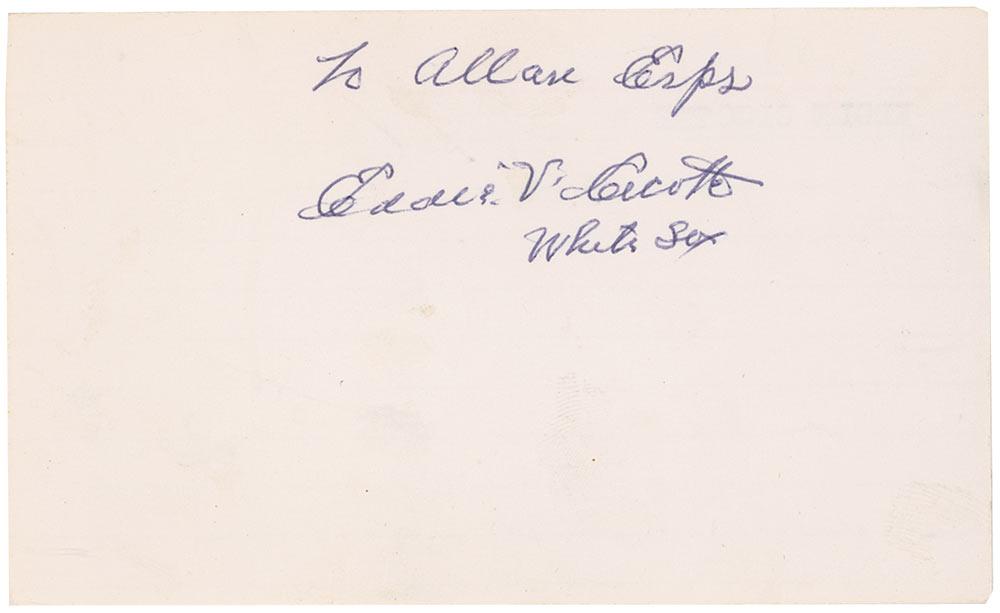 To Allan Esps
Eddie V. Cicotte
White Sox